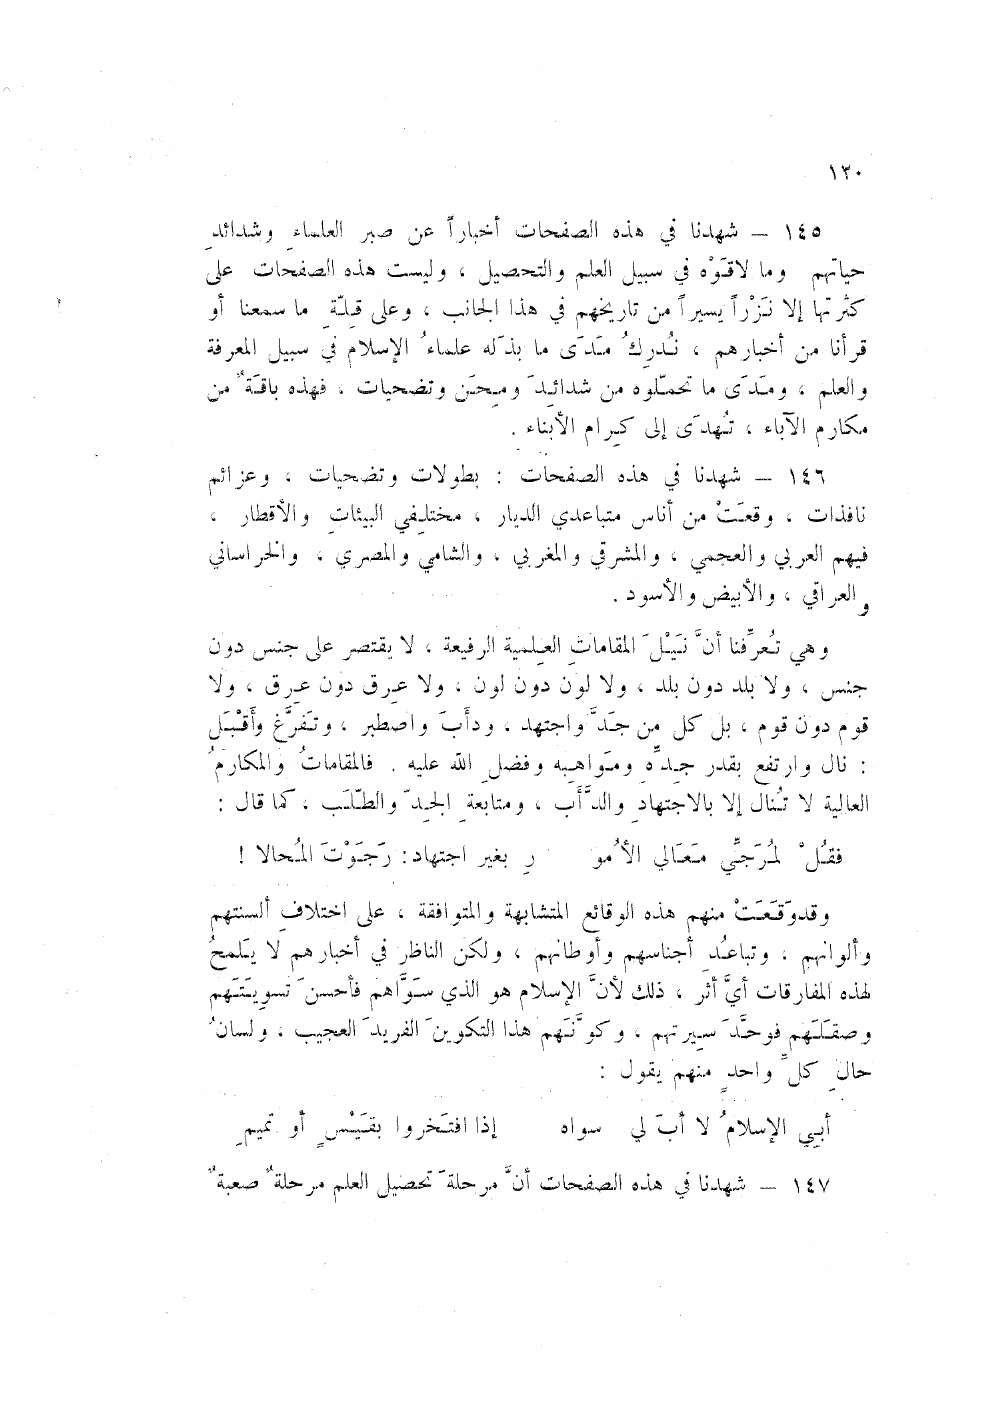 ١٢٠
١٤٥ – شهدنا في هذه الصفحات أخباراً عن صبر العلماءِ وشدائدِ
حياتهم وما لاقَوْه في سبيل العلم والتحصيل ، وليست هذه الصفحات على
كثرتها إلا نَزْراً يسيراً من تاريخهم في هذا الجانب ، وعلى قِلّةِ ما سمعنا أو
قرأنا من أخبارهم ، نُدرِكُ مَدَى ما بذَله علماءُ الإسلام في سبيل المعرفة
والعلم ، ومَدَى ما تحمّلوه من شدائِدَ ومِحَن وتضحيات ، فهذه باقَةٌ من
مكارم الآباء ، تُهدَى إلى كِرام الأبناء .
١٤٦ – شهدنا في هذه الصفحات : بطولات وتضحيات ، وعزائم
نافذات ، وقعَتْ من أناس متباعدي الديار ، مختلِفي البيئاتِ والأقطار ،
فيهم العربي والعجمي ، والمشرقي والمغربي ، والشامي والمصري ، والخراساني
والعراقي ، والأبيض والأسود .
وهي تُعرِّفنا أنَّ نَيْلَ المقاماتِ العِلمية الرفيعة ، لا يقتصر على جنس دون
جنس ، ولا بلد دون بلد ، ولا لون دون لون ، ولا عِرق دون عِرق ، ولا
قوم دون قوم ، بل كل من جَدَّ واجتهد ، ودأَبَ واصطبر ، وتَفرَّغ وأَقْبَل
: نال وارتفع بقدر جِدِّه ومَواهبِه وفضلِ الله عليه . فالمقاماتُ والمكارمُ
العالية لا تُنال إلا بالاجتهادِ والدَّأَب ، ومتابعةِ الجِدّ والطَّلَب ، كما قال :
فقُلْ لمُرَجِّي مَعَالي الأُمو رِ بغير اجتهاد: رَجَوْتَ المُحالا !
وقد وَقَعَتْ منهم هذه الوقائع المتشابهة والمتوافقة ، على اختلافِ ألسنتهم
وألوانهم ، وتباعُدِ أجناسهم وأوطانهم ، ولكن الناظر في أخبارهم لا يَلمحُ
لهذه المفارقات أيَّ أثر ، ذلك لأنَّ الإسلام هو الذي سَوَّاهم فأحسنَ تسويتَهم
وصقَلَهم فوحَّدَ سيرتهم ، وكوَّنَهم هذا التكوينَ الفريدَ العجيب ، ولسانُ
حالِ كلِّ واحدٍ منهم يقول :
أبِي الإسلامُ لا أبَ لي سواه إذا افتَخروا بقَيْسٍ أو تميمِ
١٤٧ – شهدنا في هذه الصفحات أنَّ مرحلةَ تحصيل العلم مرحلةٌ صعبةٌ